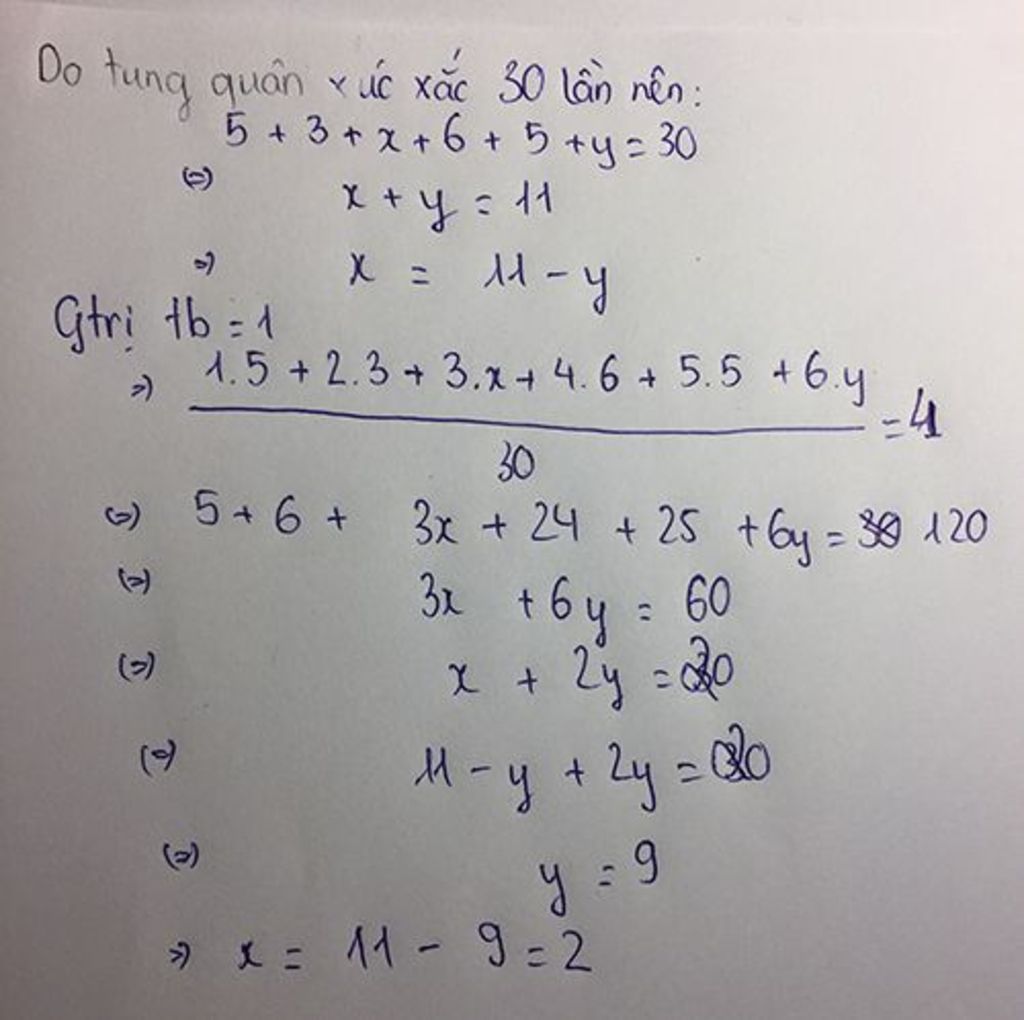 Do tung quân xúc xắc 30 lần nên:
5 + 3 + x + 6 + 5 + y = 30
(=) x + y = 11
=) x = 11 - y
Gtrị tb = 1
=) 1.5 + 2.3 + 3.x + 4.6 + 5.5 + 6.y = 4
30
(=) 5 + 6 + 3x + 24 + 25 + 6y = 120
(=) 3x + 6y = 60
(=) x + 2y = 20
(=) 11 - y + 2y = 20
(=) y = 9
=) x = 11 - 9 = 2